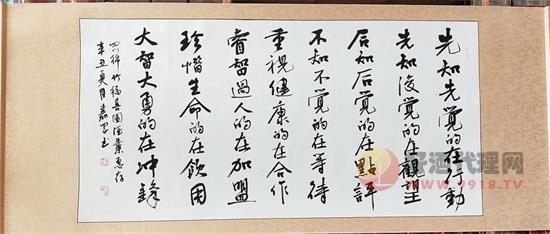 先知先觉的在行動
先知後覺的在觀望
后知后覺的在點評
不知不覺的在等待
重視健康的在合作
睿智過人的在加盟
珍惜生命的在飲用
大智大勇的在冲鋒
辛丑夏月
好酒代理网
www.9918.TV